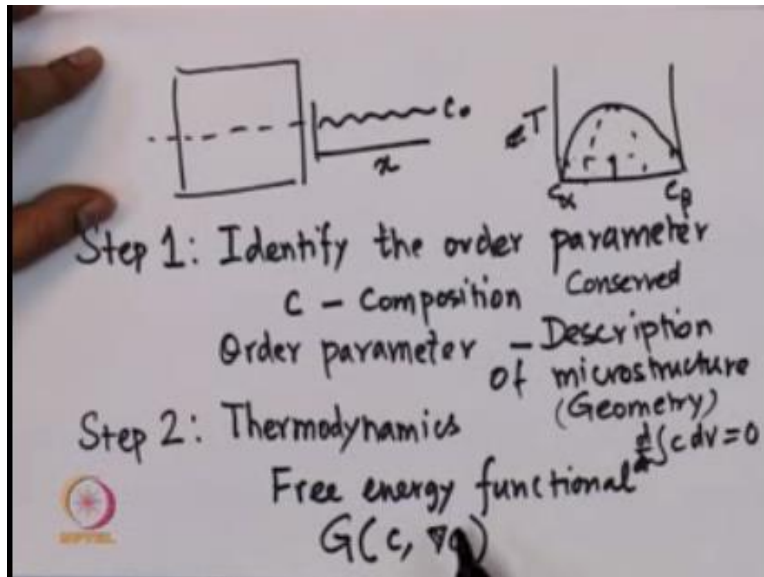 C₀
x
T
Cα Cβ
Step 1: Identify the order parameter
C - Composition Conserved
Order parameter - Description
of microstructure
(Geometry)
Step 2: Thermodynamics
d/dt ∫ c dV = 0
Free energy functional
G(c, ∇c)
NPTEL